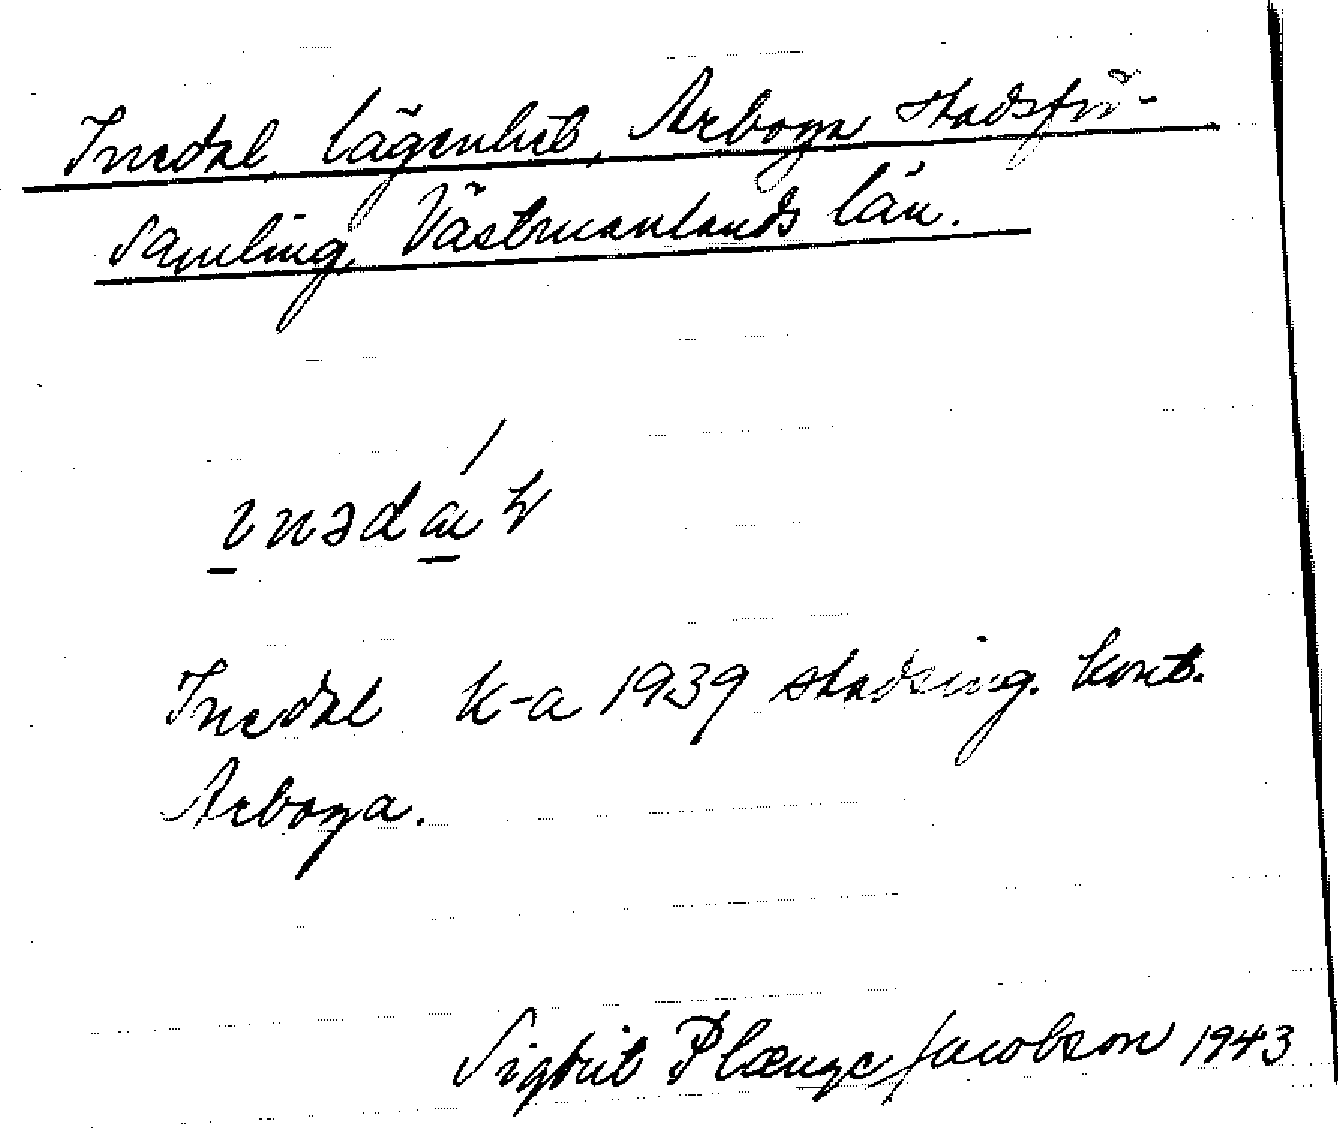 Inedal, lägenhet, Arboga stadsför-
samling, Västmanlands län.
Inedal K-a 1939 stadsing. kont.
Arboga.
Sigbrit Plænge Jacobson 1943